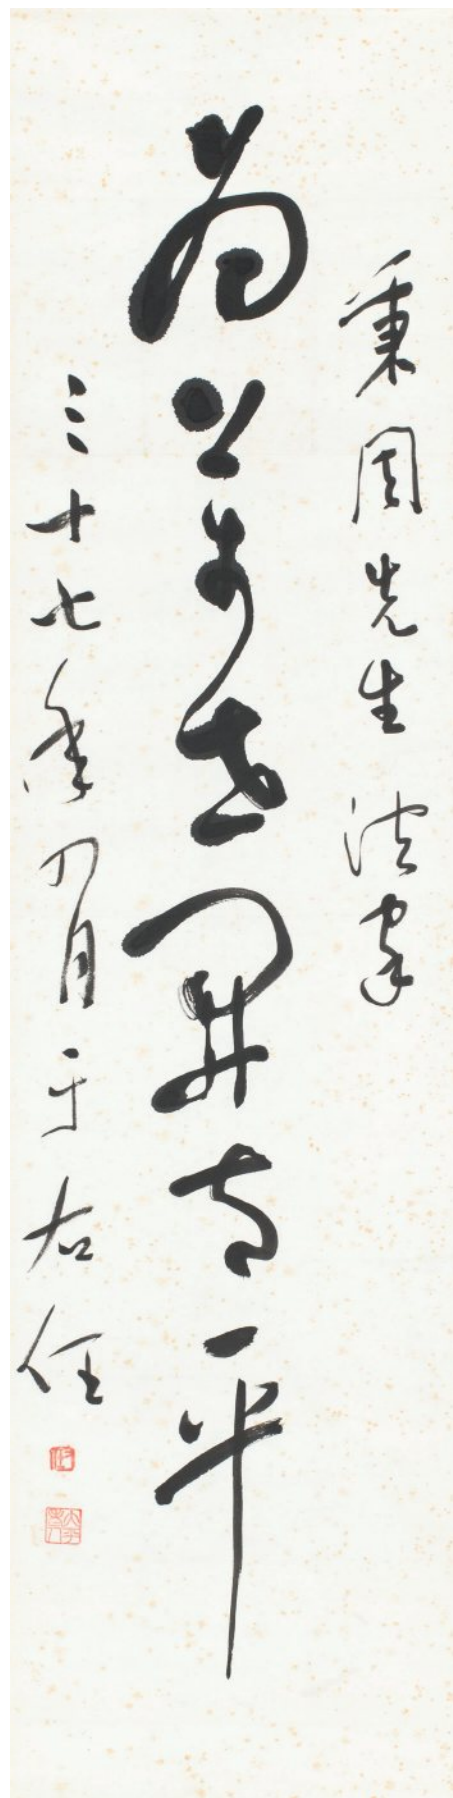 秉周先生法家
為萬世開太平
三十七年四月于右任